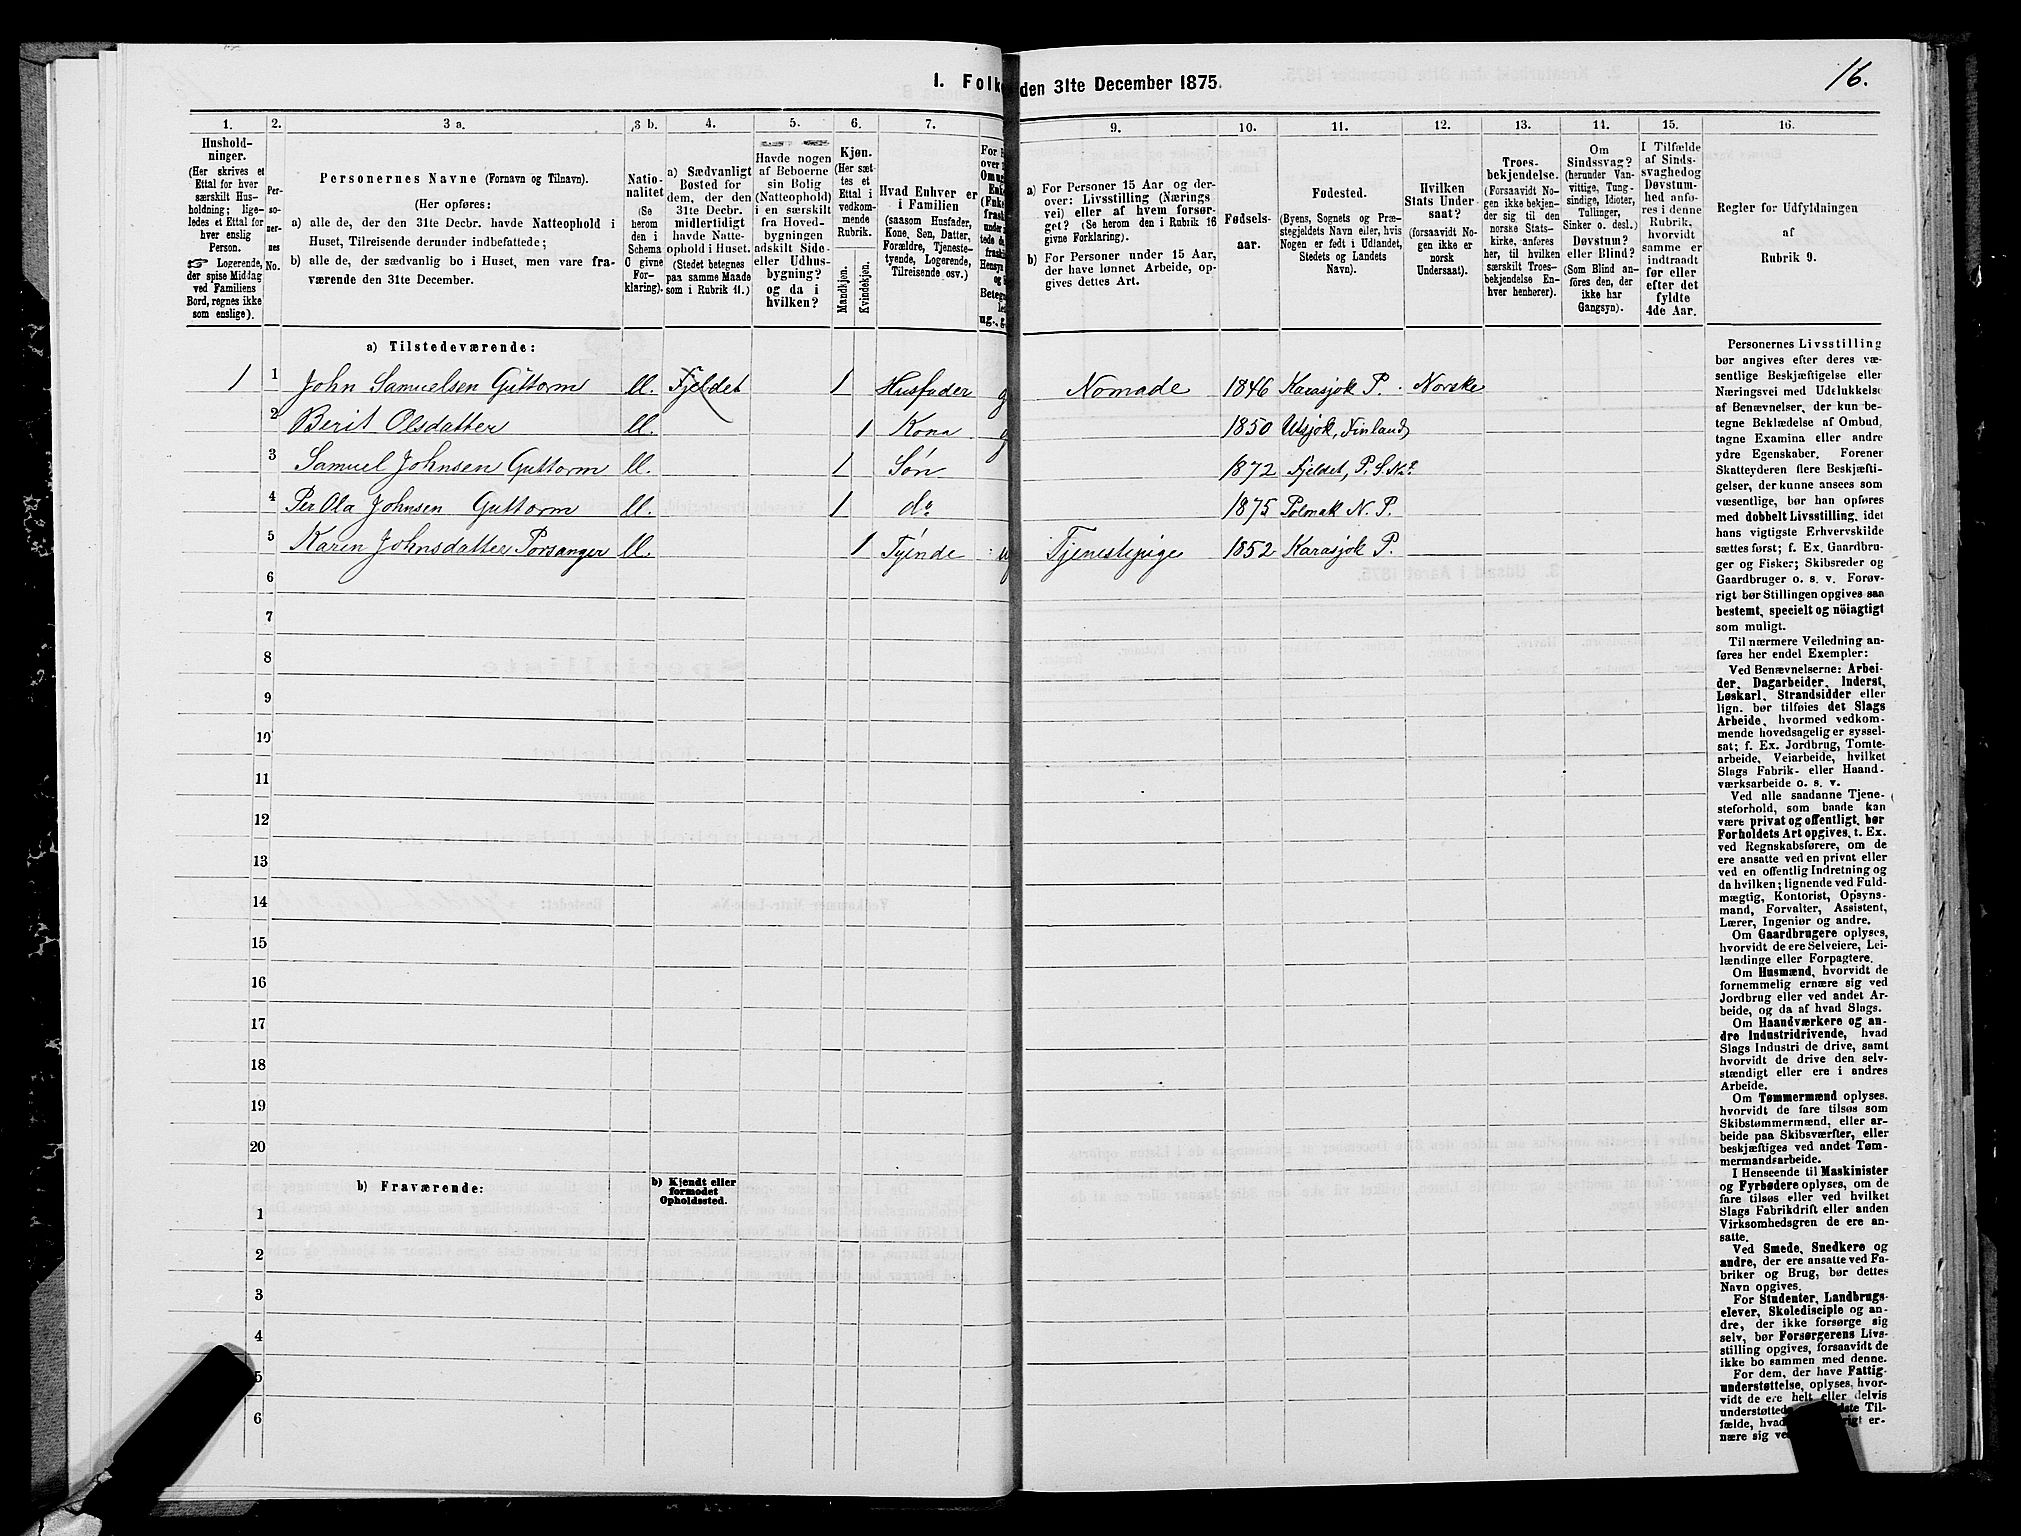 16.
1. Folke
den 31te December 1875.
1. 2. 3 a. 3 b. 4. 5. 6. 7. 9. 10. 11. 12. 13. 14. 15. 16.
Hushold-
ninger.
(Her skrives et
Ettal for hver
særskilt Hus-
holdning; lige-
ledes et Ettal for
hver enslig
Person.
☞ Logerende,
der spise Middag
ved Familiens
Bord, regnes ikke
som enslige).
Per-
so-
ner-
nes
No.
Personernes Navne (Fornavn og Tilnavn).
(Her opføres:
a) alle de, der den 31te Decbr. havde Natteophold i
Huset, Tilreisende derunder indbefattede;
b) alle de, der sædvanlig bo i Huset, men vare fra-
værende den 31te December.
Natio-
nalitet
(Se
herom
den i
Schema
C givne
For-
klaring).
a) Sædvanligt
Bosted for
dem, der den
31te Decbr.
midlertidigt
havde Natte-
ophold i Huset.
(Stedet betegnes
paa samme Maade
som i Rubrik 11.)
Havde nogen
af Beboerne
sin Bolig
(Natteophold)
i en særskilt
fra Hoved-
bygningen
adskilt Side-
eller Udhus-
bygning?
og da i
hvilken?
Kjøn.
(Her sæt-
tes et
Ettal i
vedkom-
mende
Rubrik.
Mandkjøn.
Kvindekjøn.
Hvad Enhver er
i Familien
(saasom Husfader,
Kone, Søn, Datter,
Forældre, Tjeneste-
tyende, Logerende,
Tilreisende osv.)
a) For Personer 15 Aar og der-
over: Livsstilling (Nærings
vei) eller af hvem forsør-
get? (Se herom den i Rubrik 16
givne Forklaring).
b) For Personer under 15 Aar,
der have lønnet Arbeide, op-
gives dettes Art.
Fødsels-
aar.
Fødested.
(Byens, Sognets og Præ-
stegjeldets Navn eller, hvis
Nogen er født i Udlandet,
Stedets og Landets
Navn).
Hvilken
Stats Under-
saat?
(forsaavidt No-
gen ikke er
norsk
Undersaat).
Troes-
bekjendelse.
(Forsaavidt No-
gen ikke bekjen-
der sig til den
norske Stats-
kirke, anføres
her, til hvilken
særskilt Troes-
bekjendelse En-
hver henhører).
Om
Sindssvag?
(herunder Van-
vittige, Tung-
sindige, Idioter,
Tullinger,
Sinker o. desl.)
Døvstum?
eller Blind?
(Som Blind an-
føres den, der
ikke har
Gangsyn).
I Tilfælde
af Sinds-
svaghed og
Døvstum-
hed anfø-
res i denne
Rubrik,
hvorvidt
samme er
indtraadt
før eller
efter det
fyldte
4de Aar.
Regler for Udfyldningen
af
Rubrik 9.
a) Tilstedeværende:
1 1 John Samuelsen Guttorm ll. Fjeldet 1 Husfader g Nomade 1846 Karasjok P. Norske
2 Berit Olsdatter ll. 1 Kona g 1850 Utsjok, Finland
3 Samuel Johnsen Guttorm ll. 1 Søn 1872 Fjeldet, P. S. N.
4 Per Ola Johnsen Guttorm ll. 1 do 1875 Polmak N. P.
5 Karen Johnsdatter Porsanger ll. 1 Tyende Tjenestepige 1852 Karasjok P.
6
7
8
9
10
11
12
13
14
15
16
17
18
19
20
b) Fraværende:
b) Kjendt eller
formodet
Opholdssted.
1
2
3
4
5
6
Personernes Livsstilling
bør angives efter deres væ-
sentlige Beskjæftigelse eller
Næringsvei med Udelukkelse
af Benævnelser, der kun be-
tegne Beklædelse af Ombud,
tagne Examina eller andre
ydre Egenskaber. Forener
Skatteyderen flere Beskjæfti-
gelser, der kunne ansees som
væsentlige, bør han opføres
med dobbelt Livsstilling, idet
hans vigtigste Erhvervskilde
sættes først; f. Ex. Gaardbru-
ger og Fisker; Skibsreder og
Gaardbruger o. s. v. Forøv-
rigt bør Stillingen opgives saa
bestemt, specielt og nöiagtigt
som muligt.
Til nærmere Veiledning an-
føres her endel Exempler:
Ved Benævnelserne: Arbei-
der, Dagarbeider, Inderst,
Løskarl, Strandsidder eller
lign. bør tilføies det Slags
Arbeide, hvormed vedkom-
mende hovedsagelig er syssel-
sat; f. Ex. Jordbrug, Tomte-
arbeide, Veiarbeide, hvilket
Slags Fabrik- eller Haand-
værksarbeide o. s. v.
Ved alle saadanne Tjene-
steforhold, som baade kan
være privat og offentligt, bør
Forholdets Art opgives, t. Ex.
ved Regnskabsførere, om de
ere ansatte ved en privat eller
ved en offentlig Indretning og
da hvilken; lignende ved Fuld-
mægtig, Kontorist, Opsyns-
mand, Forvalter, Assistent,
Lærer, Ingeniør og andre.
Om Gaardbrugere oplyses,
hvorvidt de ere Selveiere, Lei-
lændinge eller Forpagtere.
Om Husmænd, hvorvidt de
fornemmelig ernære sig ved
Jordbrug eller ved andet Ar-
beide, og da af hvad Slags.
Om Haandværkere og an-
dre Industridrivende, hvad
Slags Industri de drive, samt
hvorvidt de drive den selv-
stændigt eller ere i andres
Arbeide.
Om Tømmermænd oplyses,
hvorvidt de fare tilsøs som
Skibstømmermænd, eller ar-
beide paa Skibsværfter, eller
beskjæftiges ved andet Tøm-
mermandsarbeide.
I Henseende til Maskinister
og Fyrbødere oplyses, om de
fare tilsøs eller ved hvilket
Slags Fabrikdrift eller anden
Virksomhedsgren de ere an-
satte.
Ved Smede, Snedkere og
andre, der ere ansatte ved Fa-
briker og Brug, bør dettes
Navn opgives.
For Studenter, Landbrugs-
elever, Skoledisciple og an-
dre, der ikke forsørge sig
selv, bør Forsørgerens Livs-
stilling opgives, forsaavidt de
ikke bo sammen med denne.
For dem, der have Fattig-
understøttelse, oplyses, hvor-
vidt de ere helt eller delvis
understøttede Til-
fælde, hvad er-
nære sig ved